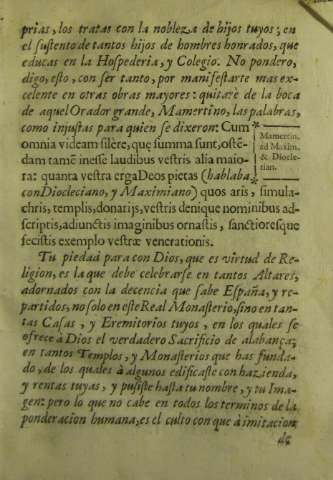 prias, los tratas con la nobleza de hijos tuyos; en
el sustento de tantos hijos de hombres honrados, que
educas en la Hospederia, y Colegio. No pondero,
digo, esto, con ser tanto, por manifestarte mas ex-
celente en otras obras mayores: quitarè de la boca
de aquel Orador grande, Mamertino, las palabras,
como injustas para quien se dixeron: Cum
omnia videam silêre, que summa sunt, ostê-
dam tamê inesse laudibus vestris alia maio-
ra: quanta vestra erga Deos pietas (hablaba
con Diocleciano, y Maximiano) quos aris, simula-
chris, templis, donarijs, vestris denique nominibus ad-
scriptis, adiunctis imaginibus ornastis, sanctioresque
fecistis exemplo vestræ venerationis.
Mamertin.
ad Maxim.
& Diocle-
tian.
Tu piedad para con Dios, que es virtud de Re-
ligion, es la que debe celebrarse en tantos Altares,
adornados con la decencia que sabe España, y re-
partidos, no solo en este Real Monasterio, sino en tan-
tas Casas, y Eremitorios tuyos, en los quales se
ofrece à Dios el verdadero Sacrificio de alabança;
en tantos Templos, y Monasterios que has funda-
do, de los quales à algunos edificaste con hazienda,
y rentas tuyas, y pusiste hasta tu nombre, y tu Ima-
gen: pero lo que no cabe en todos los terminos de la
ponderacion humana, es el culto con que à imitacion
de